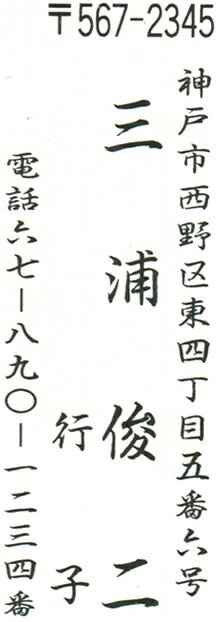 〒567-2345
神戸市西野区東四丁目五番六号
三浦俊二
行子
電話六七－八九〇－一二三四番